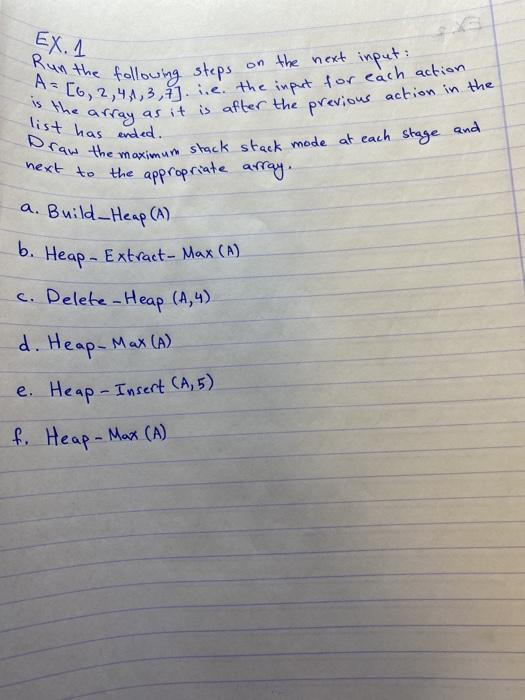 EX. 1
Run the following steps on the next input:
A = [6, 2, 4, 1, 3, 7]. i.e. the input for each action
is the array as it is after the previous action in the
list has ended.
Draw the maximum stack stack mode at each stage and
next to the appropriate array.
a. Build_Heap (A)
b. Heap - Extract - Max (A)
c. Delete - Heap (A, 4)
d. Heap - Max (A)
e. Heap - Insert (A, 5)
f. Heap - Max (A)